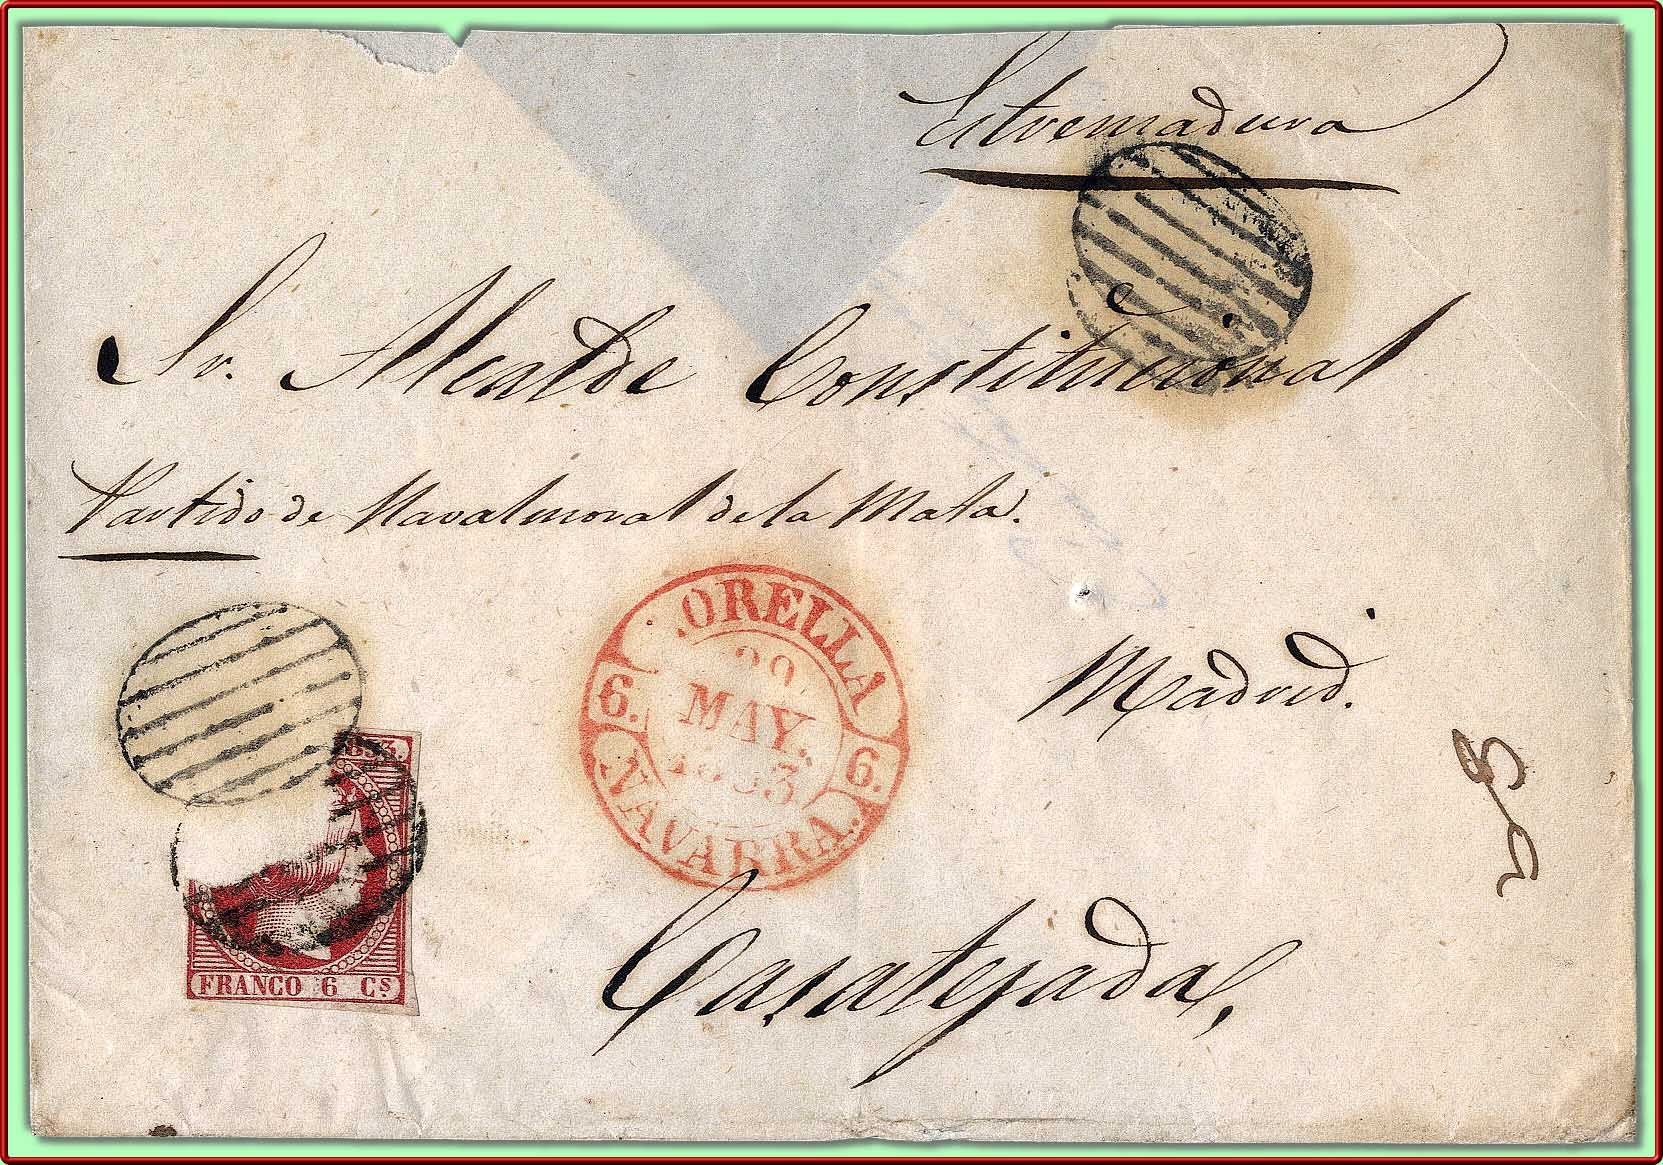 Estremadura
Sr. Alcalde Constitucional
Partido de Navalmoral de la Mata.
ORELLA
MAY.
6. 6.
NAVARRA.
Madrid.
853.
FRANCO 6 CS
Casatejada,